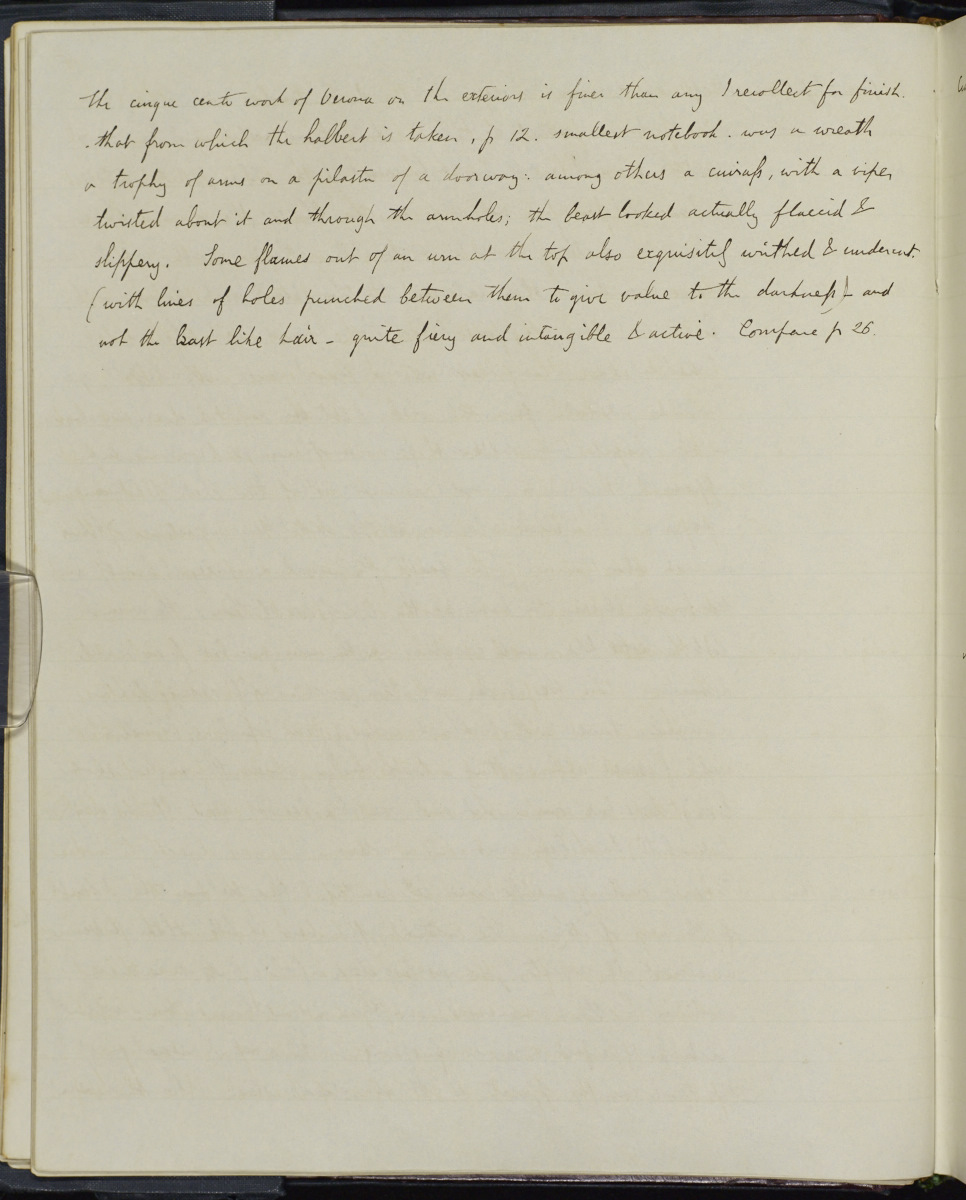 The cinque cento work of Verona on the exteriors is finer than any I recollect for finish.
. that from which the halbert is taken, p 12. smallest notebook. was a wreath
or trophy of arms on a pilaster of a doorway: among others a cuirass, with a viper
twisted about it and through the armholes; the beast looked actually flaccid &
slippery. Some flames out of an urn at the top also exquisitely writhed & undercut.
(with lines of holes punched between them to give value to the darkness) - and
not the least like hair - quite fiery and intangible & active. Compare p 26.